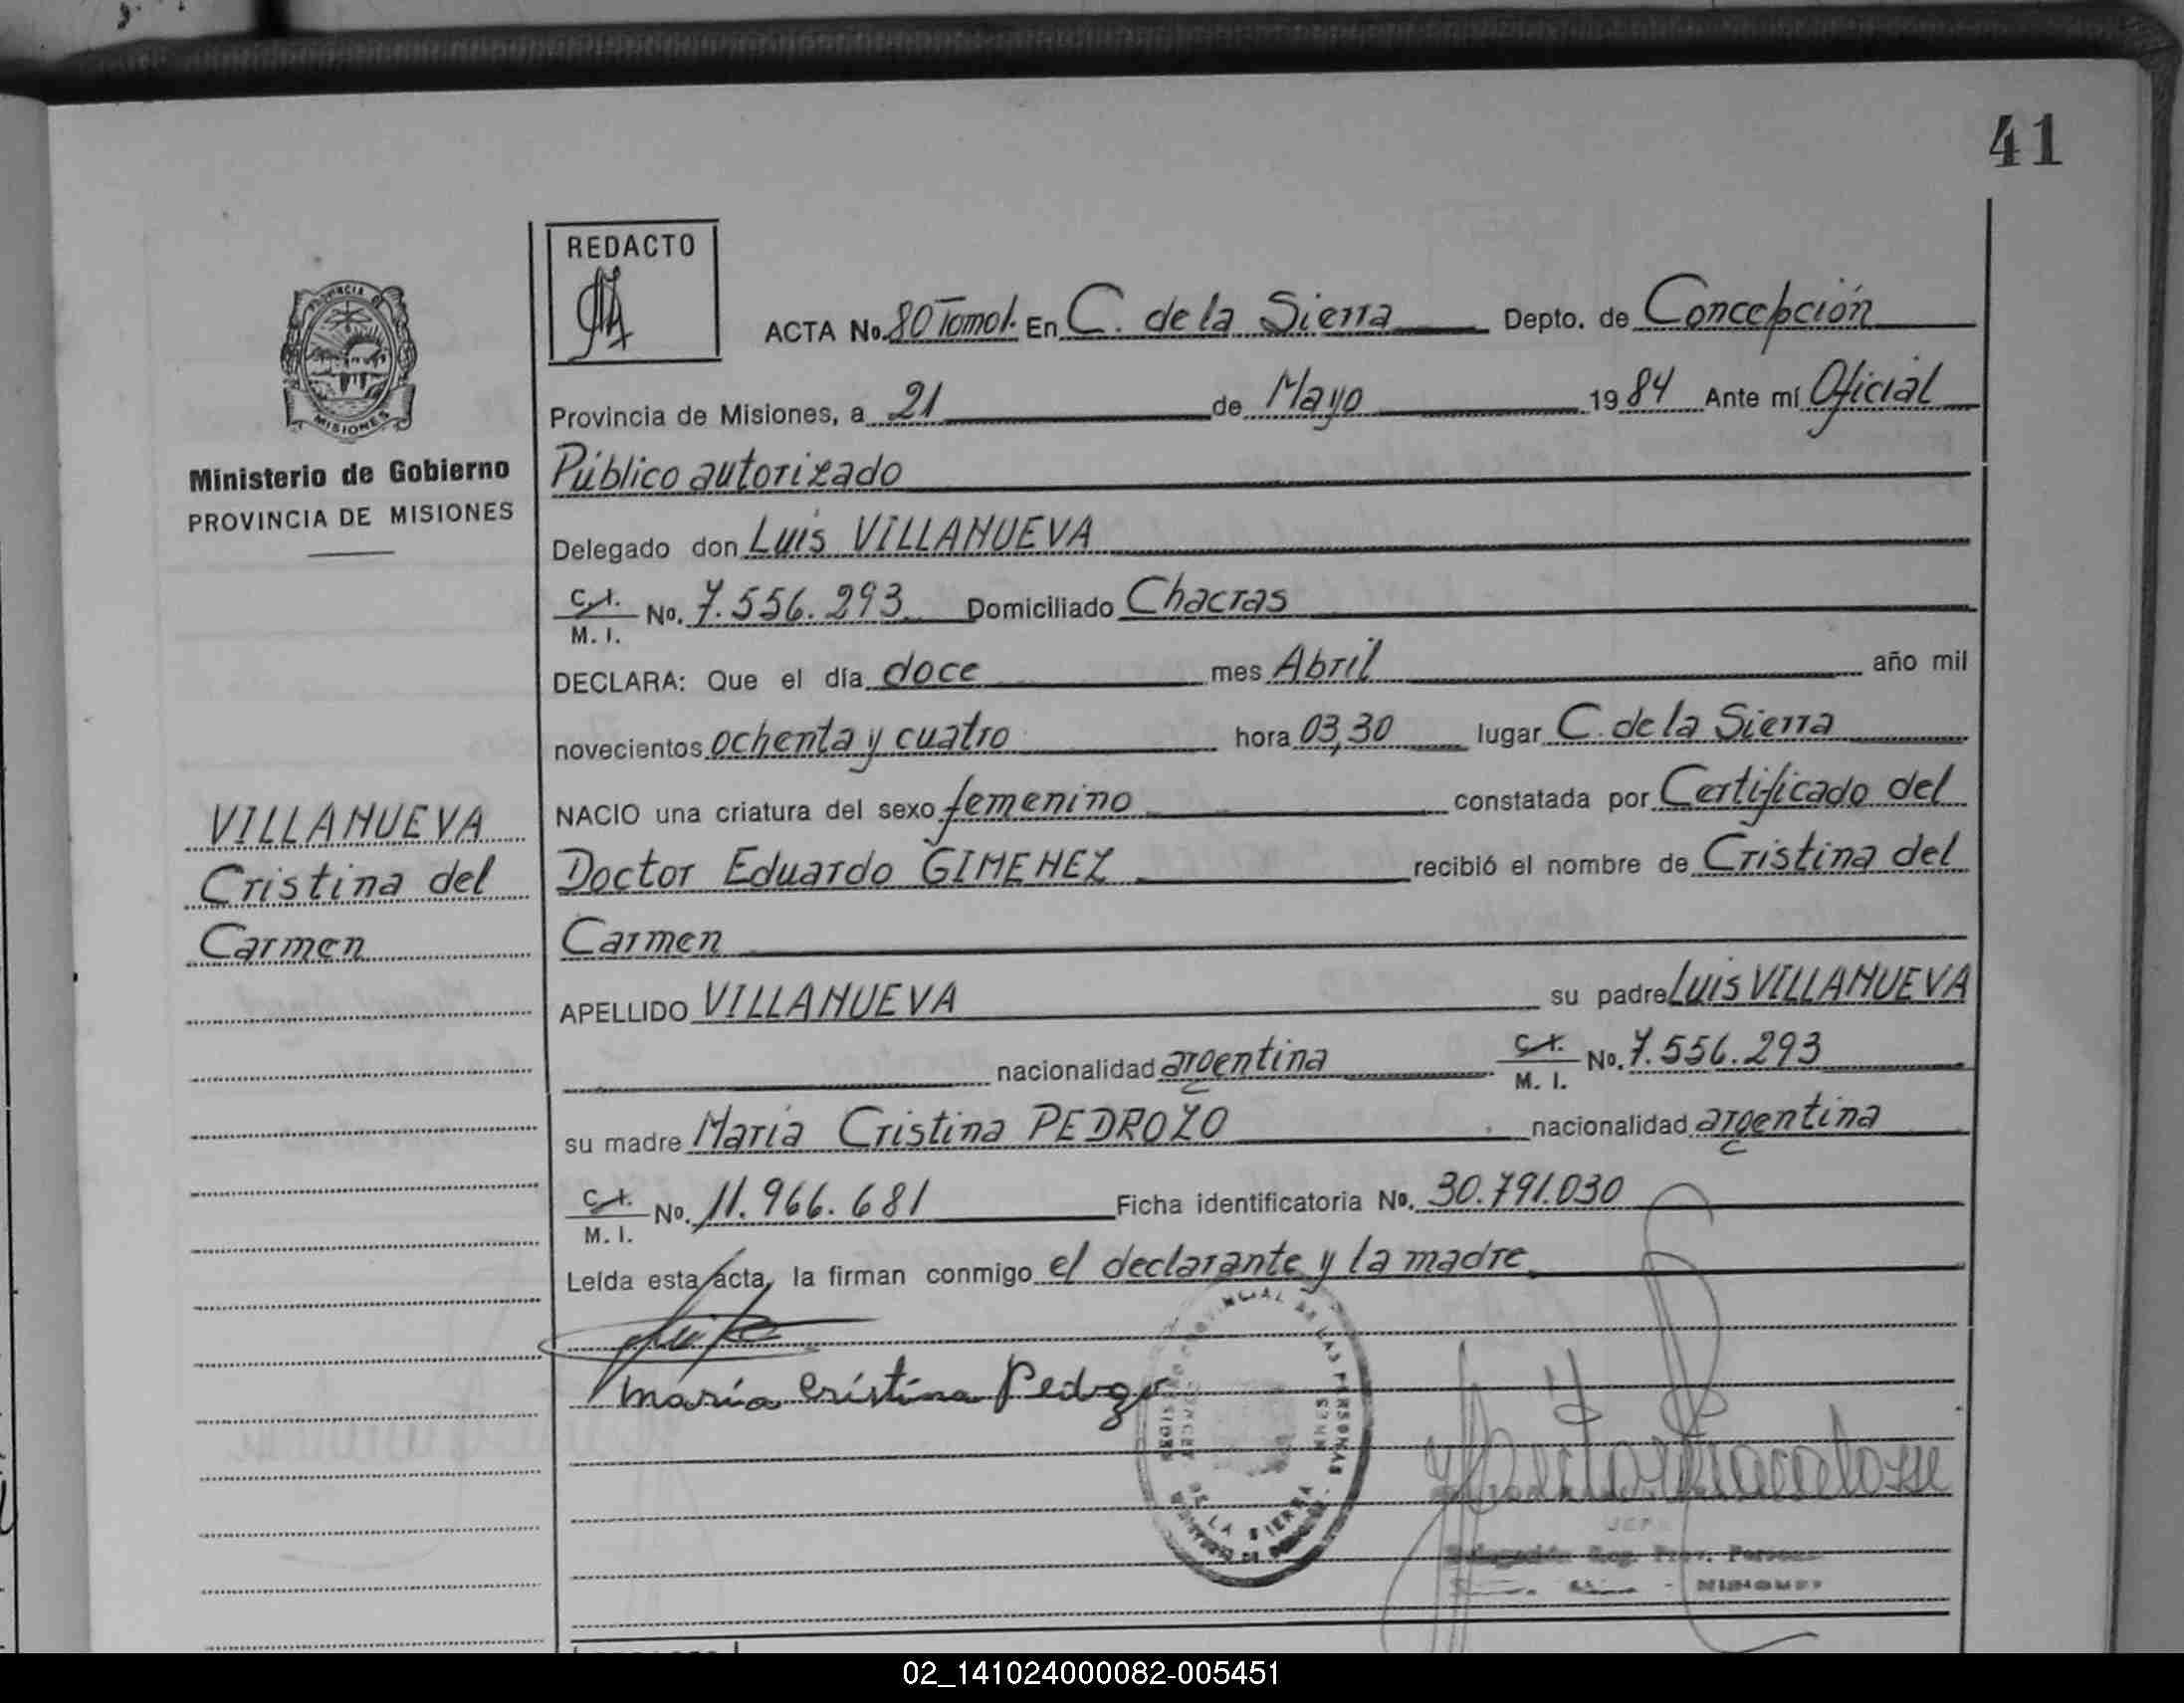 41
REDACTO
PROVINCIA DE
MISIONES
Ministerio de Gobierno
PROVINCIA DE MISIONES
ACTA No. 80 Tomo I. En C. de la Sierra Depto. de Concepción
Provincia de Misiones, a 21 de Mayo 1984 Ante mí Oficial
Público autorizado
Delegado don Luis VILLANUEVA
C. I. M. I. No. 7.556.293 Domiciliado Chacras
DECLARA: Que el día doce mes Abril año mil
novecientos ochenta y cuatro hora 03,30 lugar C. de la Sierra
NACIO una criatura del sexo femenino constatada por Certificado del
Doctor Eduardo GIMENEZ recibió el nombre de Cristina del
Carmen
VILLANUEVA
Cristina del
Carmen
APELLIDO VILLANUEVA su padre Luis VILLANUEVA
nacionalidad argentina C. I. M. I. No. 7.556.293
su madre María Cristina PEDROZO nacionalidad argentina
C. I. M. I. No. 11.966.681 Ficha identificatoria No. 30.791.030
Leída esta acta, la firman conmigo el declarante y la madre
María Cristina Pedozo
PROVINCIAL DE LAS PERSONAS
DE LA SIERRA
MISIONES
JEFE
Delegación Reg. Prov. Personas
MISIONES
02_141024000082-005451